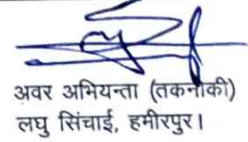 अवर अभियन्ता (तकनीकी)
लघु सिंचाई, हमीरपुर।